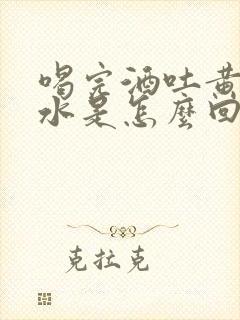 喝完酒吐黄
水是怎麽回
克拉克